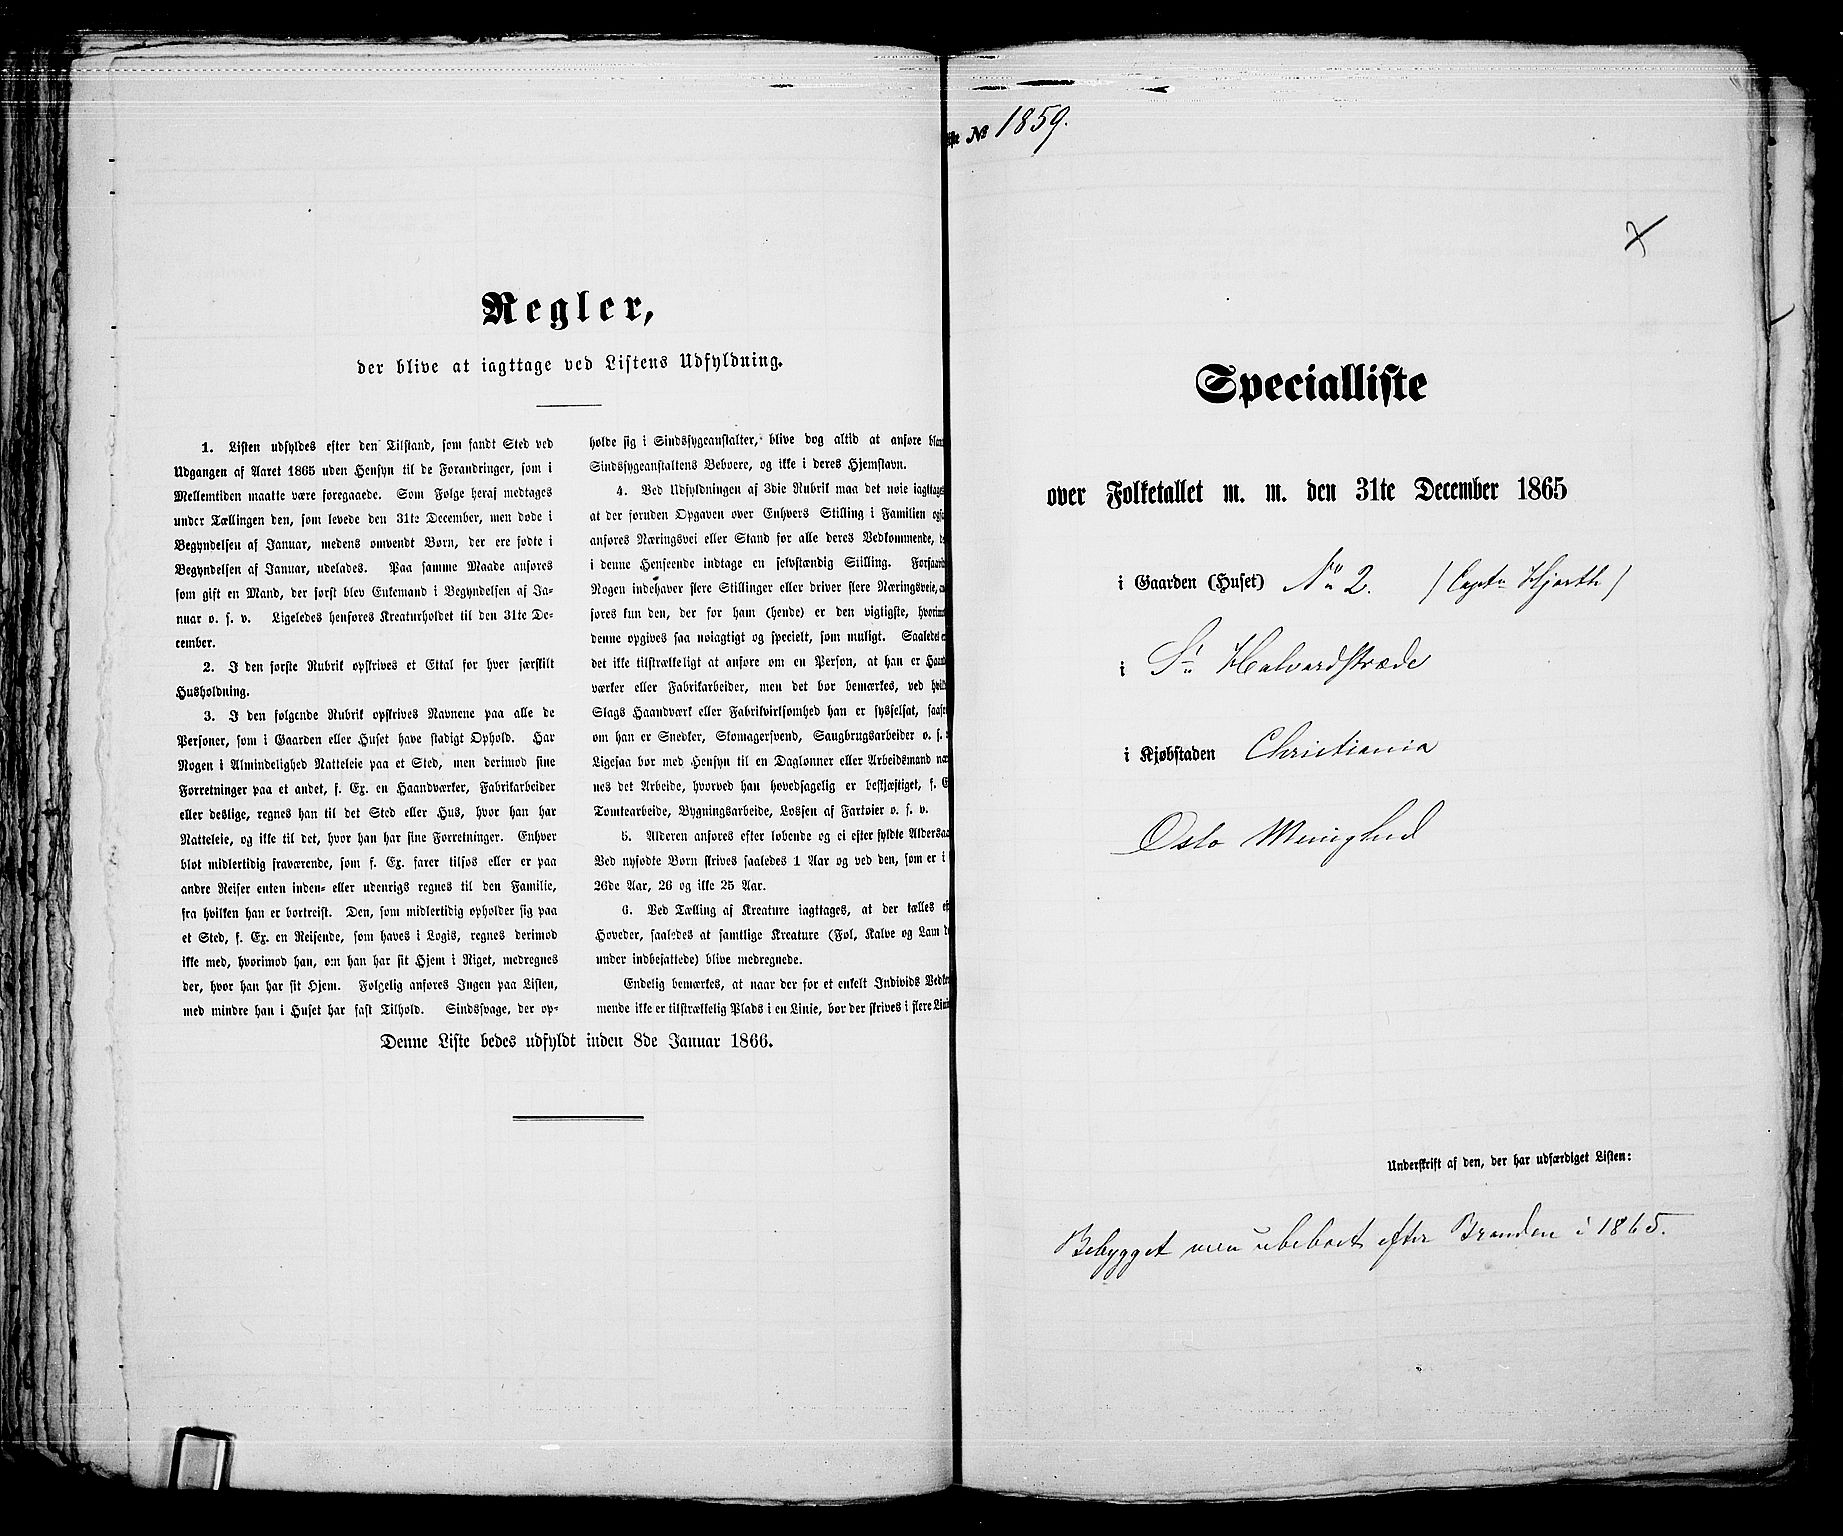 Regler,
der blive at iagttage ved Listens Udfyldning.
1. Listen udfyldes efter den Tilstand, som fandt Sted ved
Udgangen af Aaret 1865 uden Hensyn til de Forandringer, som i
Mellemtiden maatte være foregaaede. Som Følge heraf medtages
under Tællingen den, som levede den 31te December, men døde i
Begyndelsen af Januar, medens omvendt Børn, der ere fødte i
Begyndelsen af Januar, udelades. Paa samme Maade anføres
som gift en Mand, der først blev Enkemand i Begyndelsen af Ja-
nuar o. s. v. Ligeledes henføres Kreaturholdet til den 31te De-
cember.
2. I den første Rubrik opskrives et Ettal for hver særskilt
Husholdning.
3. I den følgende Rubrik opskrives Navnene paa alle de
Personer, som i Gaarden eller Huset have stadigt Ophold. Har
Nogen i Almindelighed Natteleie paa et Sted, men derimod sine
Forretninger paa et andet, f. Ex. en Haandværker, Fabrikarbeider
eller deslige, regnes han til det Sted eller Hus, hvor han har
Natteleie, og ikke til det, hvor han har sine Forretninger. Enhver
blot midlertidig fraværende, som f. Ex. farer tilsøs eller er paa
andre Reiser enten inden- eller udenrigs regnes til den Familie,
fra hvilken han er bortreist. Den, som midlertidig opholder sig paa
et Sted, f. Ex. en Reisende, som haves i Logis, regnes derimod
ikke med, hvorimod han, om han har sit Hjem i Riget, medregnes
der, hvor han har sit Hjem. Følgelig anføres Ingen paa Listen,
med mindre han i Huset har fast Tilhold. Sindssvage, der op-
holde sig i Sindssygeanstalter, blive dog altid at anføre blan
Sindssygeanstaltens Beboere, og ikke i deres Hjemstavn.
4. Ved Udfyldningen af 3die Rubrik maa det nøie iagttages
at der foruden Opgaven over Enhvers Stilling i Familien ogs
anføres Næringsvei eller Stand for alle deres Vedkommende, d
i denne Henseende indtage en selvstændig Stilling. Forsaavid
Nogen indehaver flere Stillinger eller driver flere Næringsveie, an
føres kun den, der for ham (hende) er den vigtigste, hvorimo
denne opgives saa nøiagtigt og specielt, som muligt. Saaledes e
det ikke tilstrækkeligt at anføre om en Person, at han er Haand
værker eller Fabrikarbeider, men det bør bemærkes, ved hvilk
Slags Haandværk eller Fabrikvirksomhed han er sysselsat, saasn
om han er Snedker, Skomagersvend, Saugbrugsarbeider o. s.
Ligesaa bør med Hensyn til en Daglønner eller Arbeidsmand næ
nes det Arbeide, hvorved han hovedsagelig er beskjæftiget, f. E
Tomtearbeide, Bygningsarbeide, Lossen af Fartøier o. s. v.
5. Alderen anføres efter løbende og ei efter fyldte Aldersaa
Ved nyfødte Børn skrives saaledes 1 Aar og ved den, som er i
26de Aar, 26 og ikke 25 Aar.
6. Ved Tælling af Kreature iagttages, at der tælles ef
Hoveder, saaledes at samtlige Kreature (Føl, Kalve og Lam d
under indbefattede) blive medregnede.
Endelig bemærkes, at naar der for et enkelt Individs Vedko
mende ikke er tilstrækkelig Plads i en Linie, bør der skrives i flere Lini
Denne Liste bedes udfyldt inden 8de Januar 1866.
ste № 1859.
Specialliste
over Folketallet m. m. den 31te December 1865
i Gaarden (Huset) No 2. (Captn Hjorth)
i St Halvardstræde
i Kjøbstaden Christiania
Oslo Menighed
Underskrift af den, der har udfærdiget Listen:
Bebygget men ubeboet efter Branden i 1865.